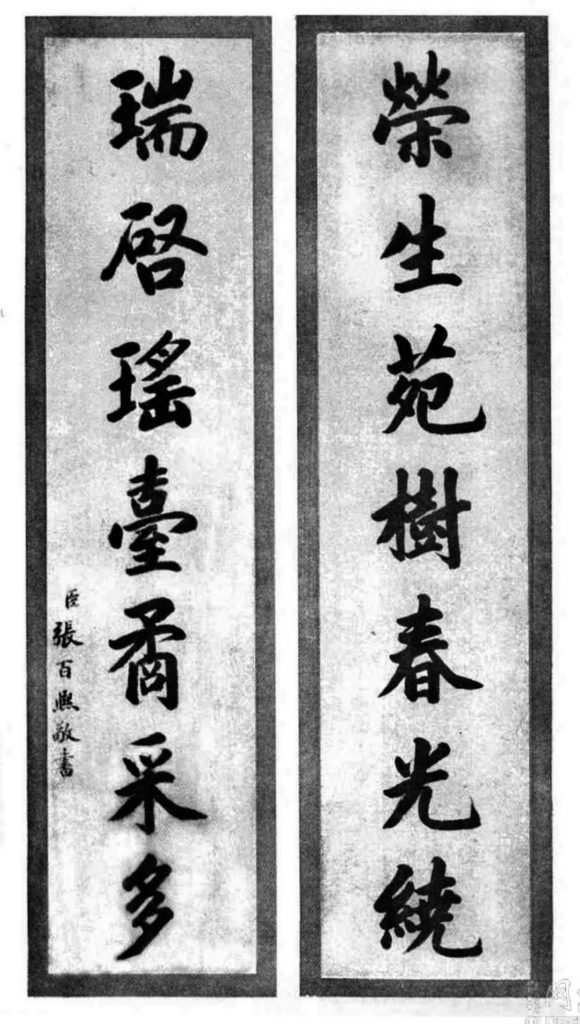 榮生苑樹春光繞
瑞啓瑤臺矞采多
臣張百熙敬書